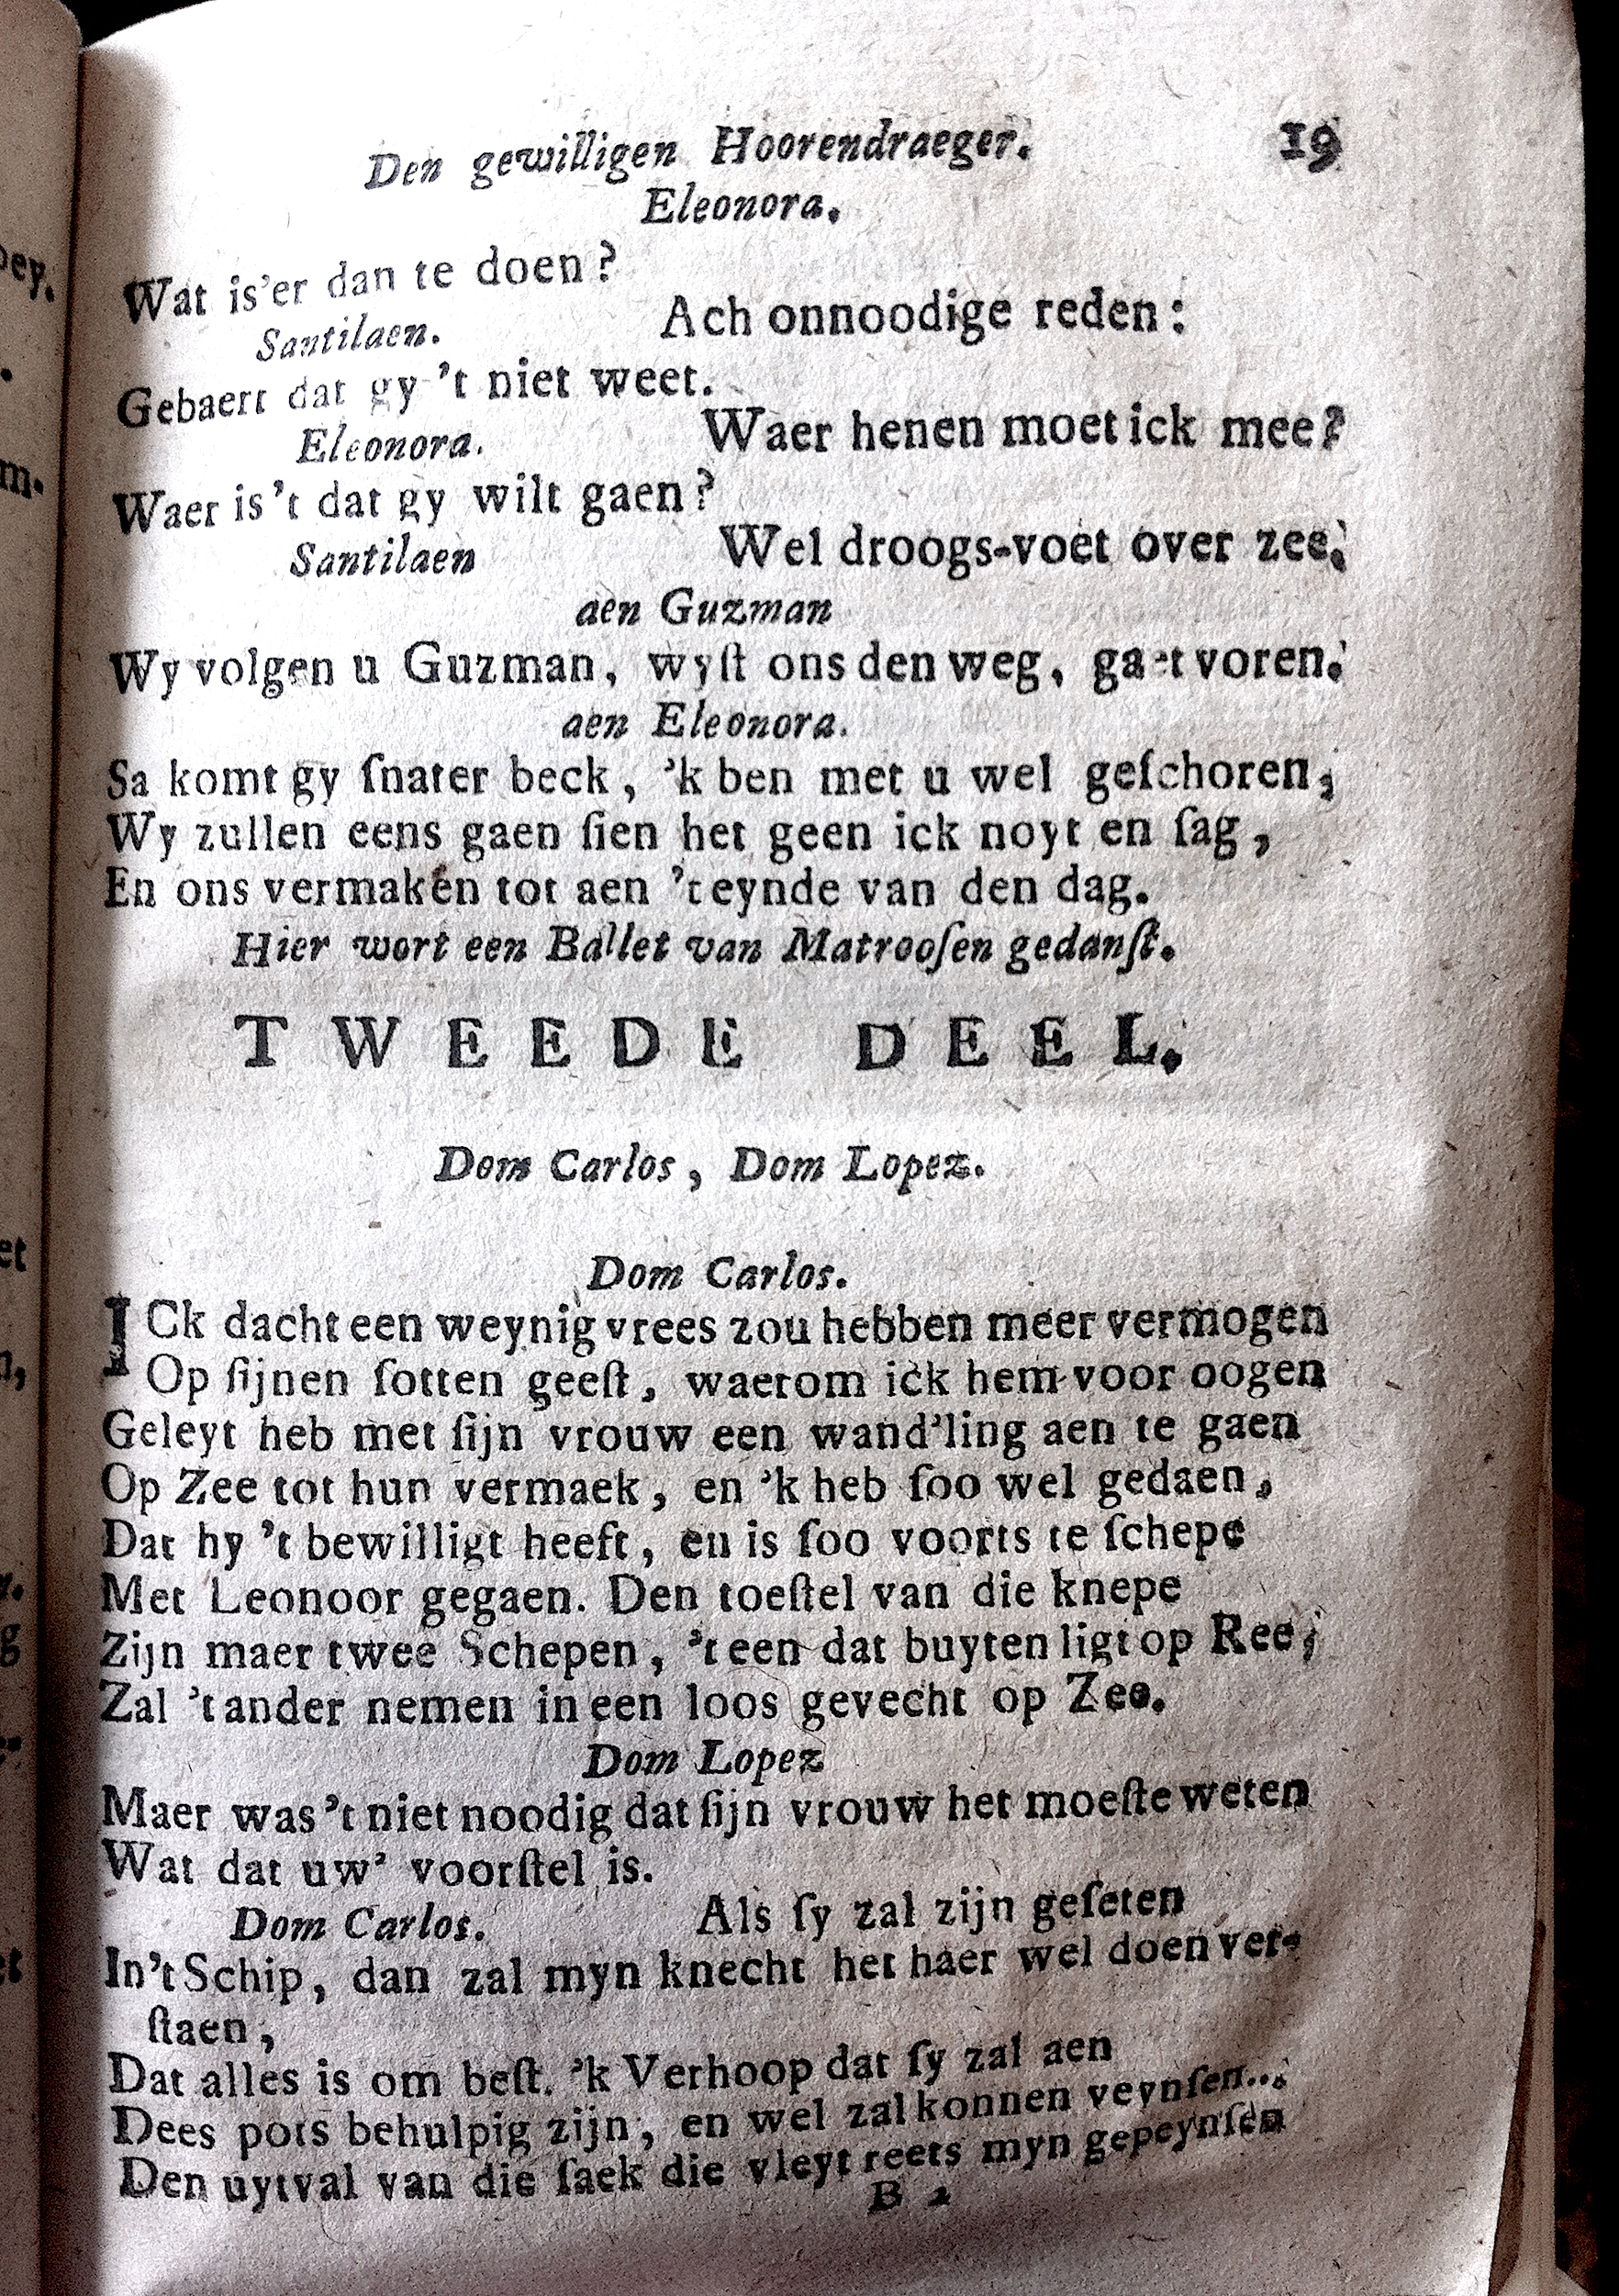 Den gewilligen Hoorendraeger. 19
Eleonora.
Wat is'er dan te doen?
Santilaen. Ach onnoodige reden:
Gebaert dat gy 't niet weet.
Eleonora. Waer henen moet ick mee?
Waer is't dat gy wilt gaen?
Santilaen Wel droogs-voet over zee.
aen Guzman
Wy volgen u Guzman, wyſt ons den weg, gaet voren.
aen Eleonora.
Sa komt gy ſnater beck, 'k ben met u wel geſchoren;
Wy zullen eens gaen ſien het geen ick noyt en ſag,
En ons vermaken tot aen 't eynde van den dag.
Hier wort een Ballet van Matrooſen gedanſt.
TWEEDE DEEL.
Dom Carlos, Dom Lopez.
Dom Carlos.
ICk dacht een weynig vrees zou hebben meer vermogen
Op ſijnen ſotten geeſt, waerom ick hem voor oogen
Geleyt heb met ſijn vrouw een wand'ling aen te gaen
Op Zee tot hun vermaek, en 'k heb ſoo wel gedaen,
Dat hy 't bewilligt heeft, en is ſoo voorts te ſchepe
Met Leonoor gegaen. Den toeſtel van die knepe
Zijn maer twee Schepen, 't een dat buyten ligt op Ree;
Zal 't ander nemen in een loos gevecht op Zee.
Dom Lopez
Maer was 't niet noodig dat ſijn vrouw het moeſte weten
Wat dat uw' voorſtel is.
Dom Carlos. Als ſy zal zijn geſeten
In't Schip, dan zal myn knecht het haer wel doen ver-
ſtaen,
Dat alles is om beſt. 'k Verhoop dat ſy zal aen
Dees pots behulpig zijn, en wel zal konnen veynſen...
Den uytval van die ſaek die vleyt reets myn gepeynſen
B 2